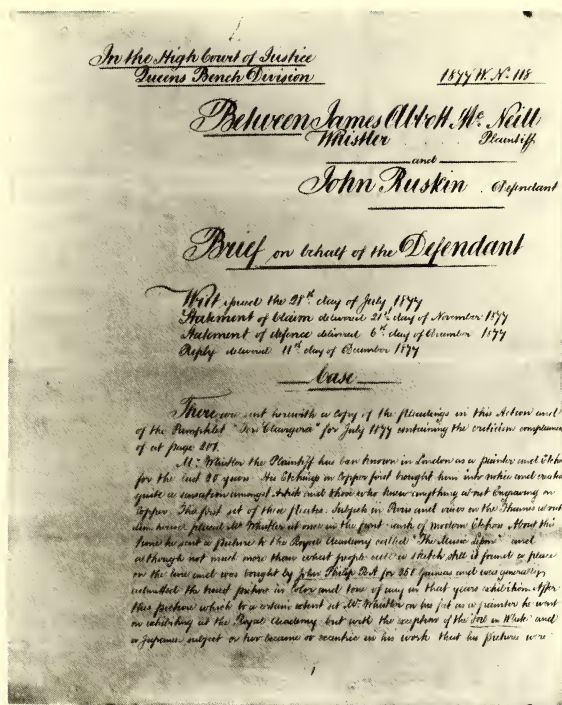 In the High Court of Justice
Queens Bench Division
1877 W. No. 118
Between James Abbott Mc. Neill
Whistler Plaintiff
and
John Ruskin Defendant
Brief on behalf of the Defendant
Writ issued the 28th. day of July 1877
Statement of Claim delivered 21st day of November 1877
Statement of defence delivered 6th. day of December 1877
Reply delivered 11th day of December 1877
Case
There are sent herewith a Copy of the pleadings in this Action and
of the Pamphlet "Fors Clavigera" for July 1877 containing the criticism complained
of at page 201.
Mr. Whistler the Plaintiff has been known in London as a painter and Etcher
for the last 20 years. His Etchings on Copper first brought him into notice and created
quite a sensation amongst Artists and those who knew anything about Engraving on
Copper. The first set of these plates. Subjects in Paris and views on the Thames about
placed Mr. Whistler at once in the first rank of modern Etchers. About this
time he sent a picture to the Royal Academy called "The Music" and
although not much more than what people call a sketch still it found a place
on the line and was bought by John Philip R.A for Guineas and was generally
admitted the picture in Color and tone of any in that years exhibition. After
this picture which to a certain extent set Mr. Whistler on his feet as a painter he went
on exhibiting at the Royal Academy but with the exception of the in White and
a Japanese subject or two became so eccentric in his work that his pictures were
1